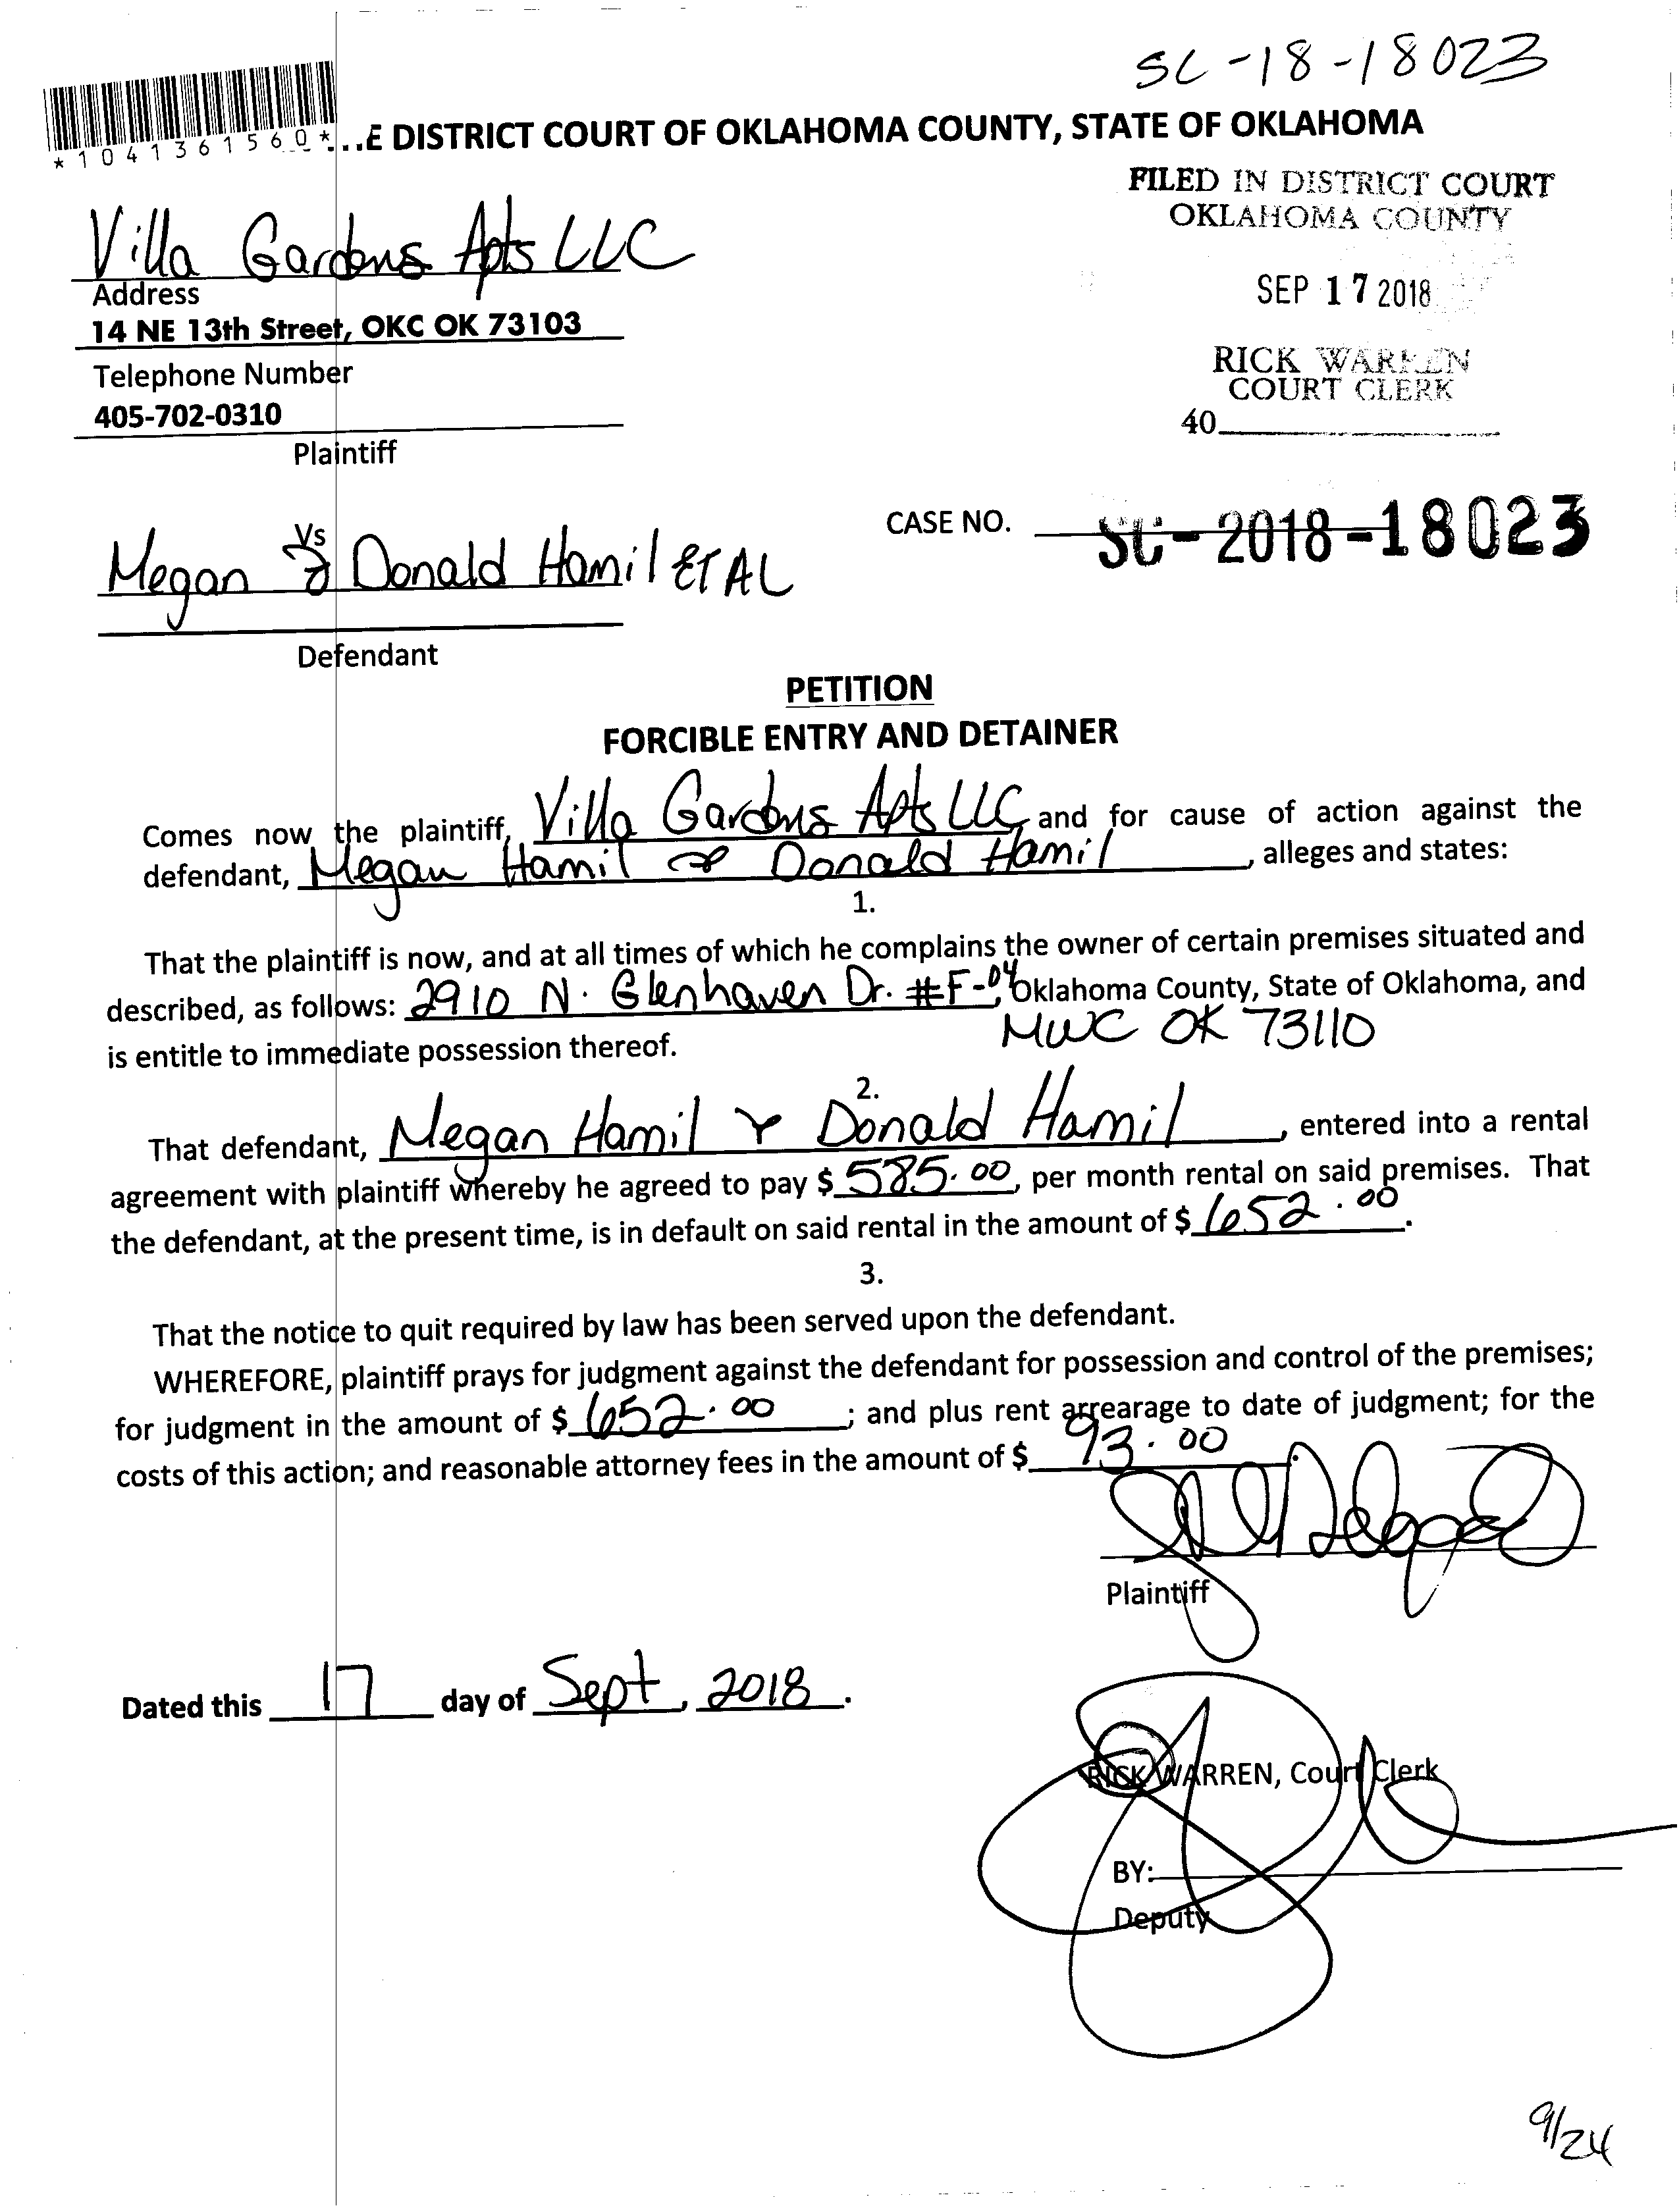 SC-18-18023
*1041361560*
...E DISTRICT COURT OF OKLAHOMA COUNTY, STATE OF OKLAHOMA
FILED IN DISTRICT COURT
OKLAHOMA COUNTY
SEP 17 2018
RICK WARREN
COURT CLERK
40
Villa Gardens Apts LLC
Address
14 NE 13th Street, OKC OK 73103
Telephone Number
405-702-0310
Plaintiff
Vs
CASE NO. SC-2018-18023
Megan & Donald Hamil ET AL
Defendant
PETITION
FORCIBLE ENTRY AND DETAINER
Comes now the plaintiff, Villa Gardens Apts LLC and for cause of action against the
defendant, Megan Hamil & Donald Hamil, alleges and states:
1.
That the plaintiff is now, and at all times of which he complains the owner of certain premises situated and
described, as follows: 2910 N. Glenhaven Dr. #F-04, Oklahoma County, State of Oklahoma, and
MWC OK 73110
is entitle to immediate possession thereof.
2.
That defendant, Megan Hamil & Donald Hamil, entered into a rental
agreement with plaintiff whereby he agreed to pay $ 585.00, per month rental on said premises. That
the defendant, at the present time, is in default on said rental in the amount of $ 652.00.
3.
That the notice to quit required by law has been served upon the defendant.
WHEREFORE, plaintiff prays for judgment against the defendant for possession and control of the premises;
for judgment in the amount of $ 652.00; and plus rent arrearage to date of judgment; for the
costs of this action; and reasonable attorney fees in the amount of $ 93.00.
Plaintiff
Dated this 17 day of Sept, 2018.
RICK WARREN, Court Clerk
BY:
Deputy
9/24